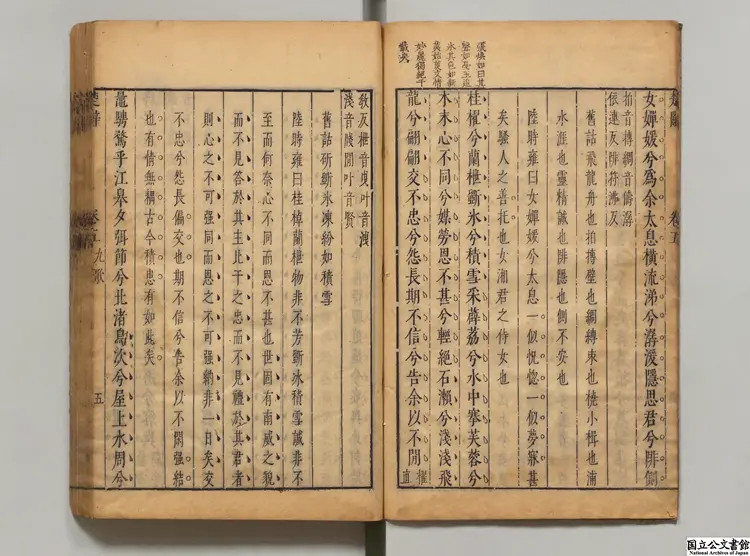 卷五
女嬋媛兮爲余太息橫流涕兮潺湲隱思君兮陫側
拍音搏綢音儔潺
俟連反陫符沸反
舊詁飛龍舟也拍搏壁也綢縛束也橈小楫也涌
水涯也靈精誠也陫隱也側不安也
陸時雍曰女嬋媛兮太息一似恍惚一似夢寐甚
矣騷人之善托也女湘君之侍女也
張煥如曰其
妙處獨絕千
載矣
桂櫂兮蘭枻斲氷兮積雪采薜荔兮水中搴芙蓉兮
木末心不同兮媒勞恩不甚兮輕絕石瀨兮淺淺飛
龍兮翩翩交不忠兮怨長期不信兮告余以不閒
櫂直
敎反枻音曳叶音洩
淺音牋閒叶音賢
舊詁斫斲氷凍紛如積雪
陸時雍曰桂棹蘭枻物非不芳斲氷積雪誠非不
至而何奈心不同而恩不甚也世固有南威之貌
而不見答於其主比干之忠而不見禮於其君者
則心之不可强同而恩之不可强納非一日矣交
不忠兮怨長偏交也期不信兮告余以不閒强結
也有情無稠古今積患有如此矣
鼂騁騖乎江皋夕弭節兮北渚鳥次兮屋上水周兮
楚辭 卷五九歌 五
国立公文書館
National Archives of Japan